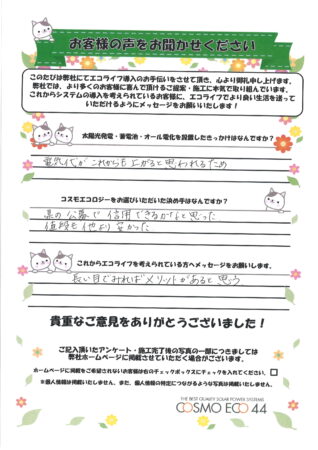 お客様の声をお聞かせください
このたびは弊社にてエコライフ導入のお手伝いをさせて頂き、心より御礼申し上げます。
弊社では、より多くのお客様に喜んで頂けるご提案・施工に本気で取り組んでいます。
これからシステムの導入を考えられているお客様に、エコライフでより良い生活を送って
いただけるようにメッセージをお願いします！
太陽光発電・蓄電池・オール電化を設置したきっかけはなんですか？
電気代がこれからも上がると思われるため
コスモエコロジーをお選びいただいた決め手はなんですか？
県の公募で信用できるかなと思った
値段も他より安かった
これからエコライフを考えられている方へメッセージをお願いします。
長い目でみればメリットがあると思う
貴重なご意見をありがとうございました！
ご記入頂いたアンケート・施工完了後の写真の一部につきましては
弊社ホームページに掲載させていただく場合がございます。
ホームページに掲載をご希望されないお客様は右のチェックボックスにチェックを入れてください。
※個人情報は掲載いたしません、また、個人情報の特定につながるような写真は掲載いたしません。
THE BEST QUALITY SOLAR POWER SYSTEMS
COSMO ECO 44